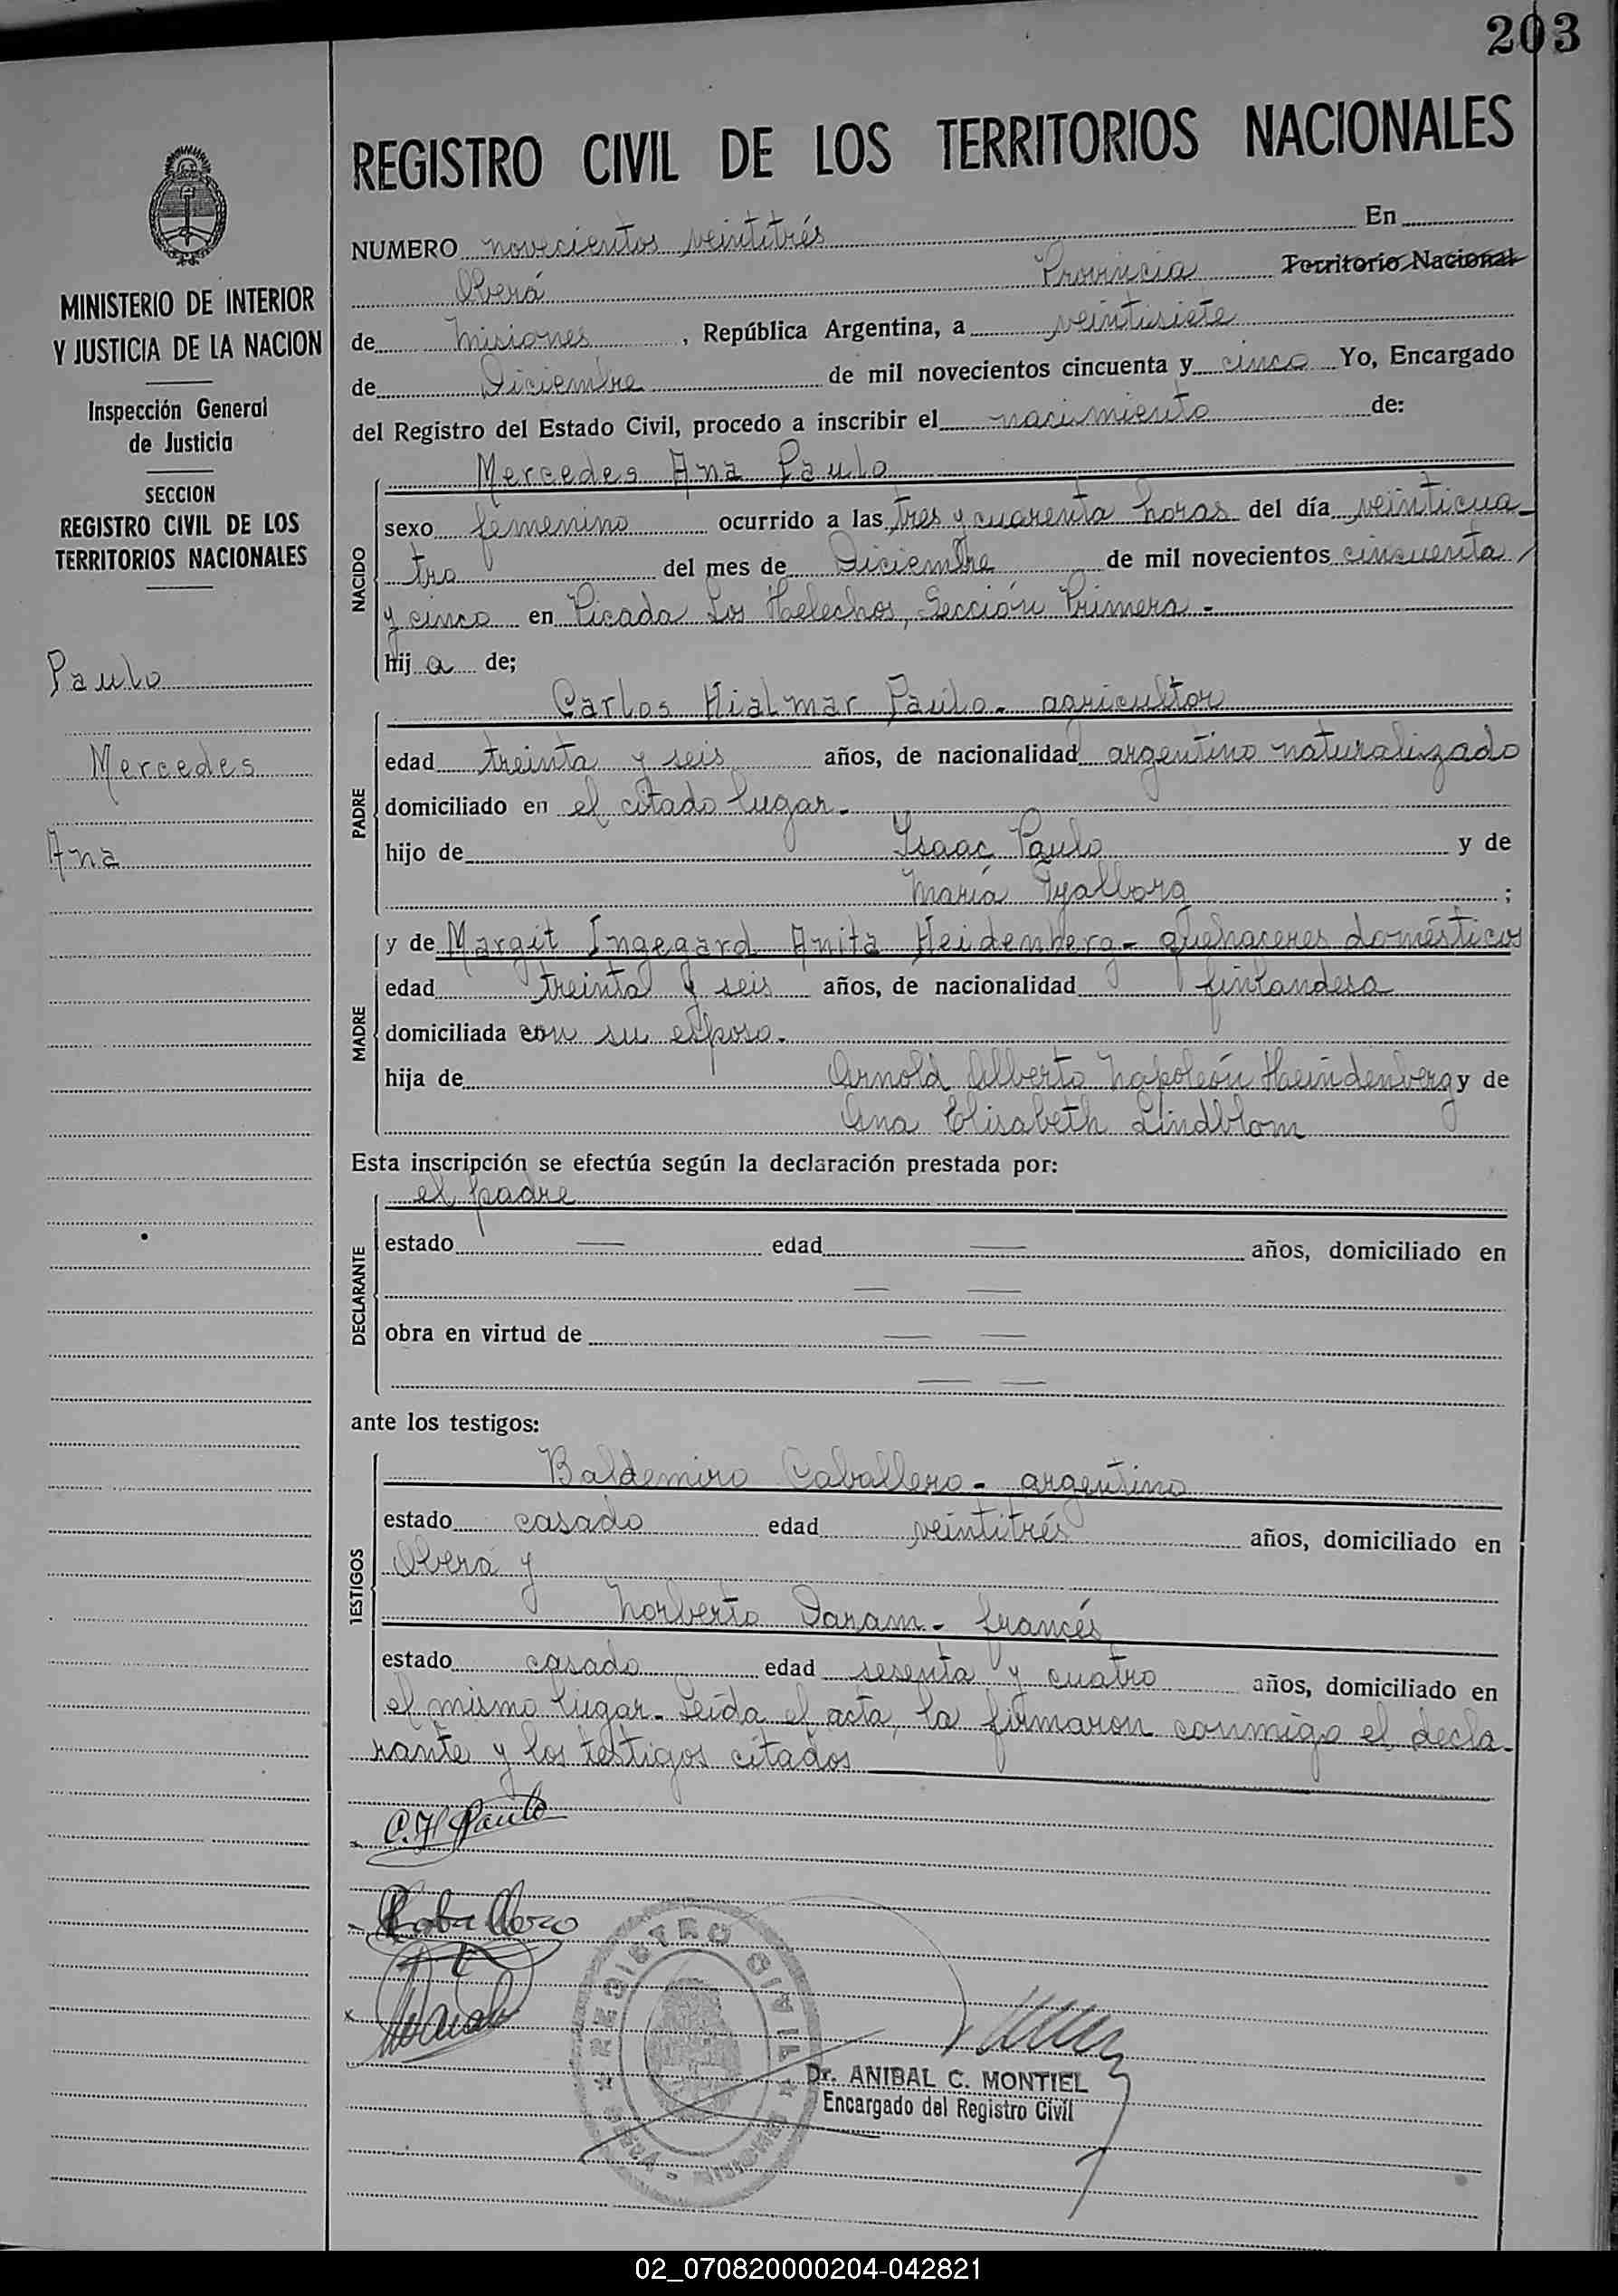 203
MINISTERIO DE INTERIOR
Y JUSTICIA DE LA NACION
Inspección General
de Justicia
SECCION
REGISTRO CIVIL DE LOS
TERRITORIOS NACIONALES
Paulo
Mercedes
Ana
REGISTRO CIVIL DE LOS TERRITORIOS NACIONALES
NUMERO novecientos veintitrés En
Oberá Provincia Territorio Nacional
de Misiones, República Argentina, a veintisiete
de Diciembre de mil novecientos cincuenta y cinco Yo, Encargado
del Registro del Estado Civil, procedo a inscribir el nacimiento de:
Mercedes Ana Paulo
NACIDO
sexo femenino ocurrido a las tres y cuarenta horas del día veinticua-
tro del mes de Diciembre de mil novecientos cincuenta
y cinco en Picada Los Helechos, Sección Primera.-
hija de;
Carlos Hialmar Paulo- agricultor
PADRE
edad treinta y seis años, de nacionalidad argentino naturalizado
domiciliado en el citado lugar.
hijo de Isaac Paulo y de
María ;
y de Margit Ingegard Anita Heidenberg- quehaceres domésticos
MADRE
edad treinta y seis años, de nacionalidad finlandesa
domiciliada con su esposo.
hija de Arnold Alberto Napoleón Heindenberg y de
Ana Elisabeth Lindblom
Esta inscripción se efectúa según la declaración prestada por:
el padre
DECLARANTE
estado — edad — años, domiciliado en
— —
obra en virtud de — —
— —
ante los testigos:
Baldemiro Caballero- argentino
TESTIGOS
estado casado edad veintitrés años, domiciliado en
Oberá y
Norberto Daram- francés
estado casado edad sesenta y cuatro años, domiciliado en
el mismo lugar- Leída el acta, la firmaron conmigo el decla-
rante y los testigos citados
C. H Paulo
Caballero
REGISTRO CIVIL
MISIONES
Dr. ANIBAL C. MONTIEL
Encargado del Registro Civil
02_070820000204-042821